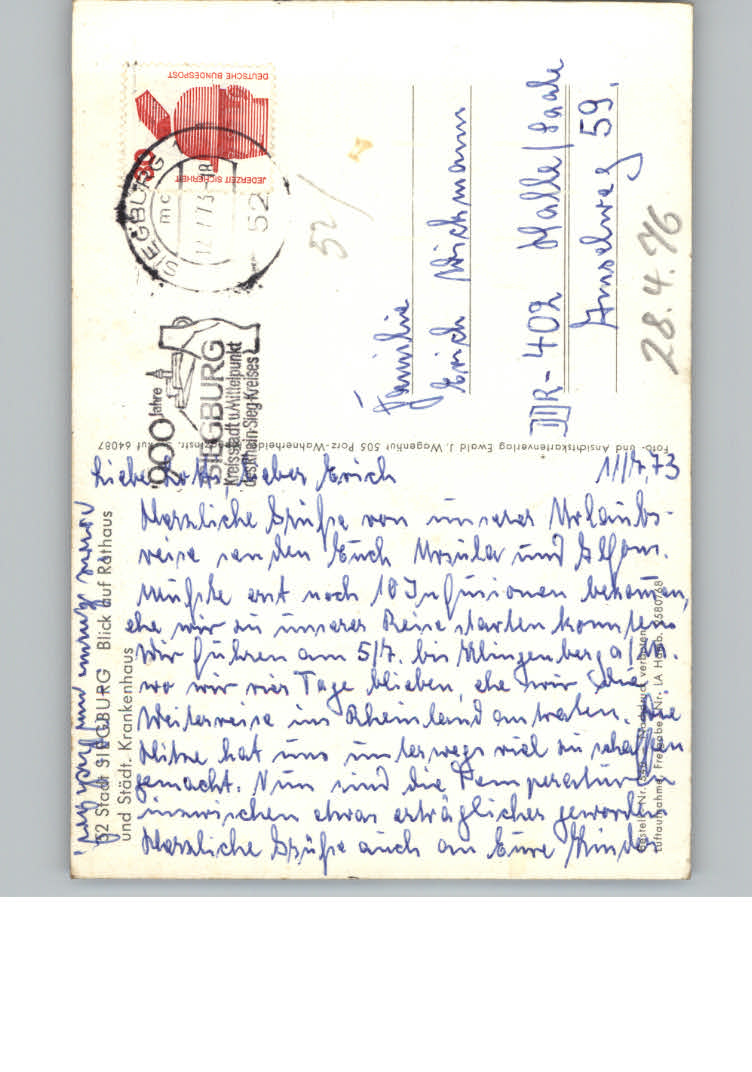 DEUTSCHE BUNDESPOST
JEDERZEIT SICHERHEIT
30
SIEGBURG 1
mc
12.7.73-18
52
900 Jahre
SIEGBURG
Kreisstadt u. Mittelpunkt
des Rhein-Sieg-Kreises
52/
Familie
Erich Wichmann
DDR-402 Halle/Saale
Amselweg 59.
28.4.76
Foto- und Ansichtskartenverlag Ewald J. Wagenkur 505 Porz-Wahnerheide
52 Stadt SIEGBURG Blick auf Rathaus
und Städt. Krankenhaus
Luftaufnahme, Freigabe-Nr. LA Hamb.
11/7.73
Liebe Lotte, lieber Erich
Herzliche Grüße von unserer Urlaubs-
reise senden Euch Ursula und Alfons.
Mußte erst noch 10 Infusionen bekommen,
ehe wir zu unserer Reise starten konnten.
Wir fuhren am 5/7. bis Klingenberg a/M.
wo wir vier Tage blieben, ehe wir die
Weiterreise ins Rheinland antraten. Die
Hitze hat uns unterwegs viel zu schaffen
gemacht. Nun sind die Temperaturen
inzwischen etwas erträglicher geworden
Herzliche Grüße auch an Eure Kinder